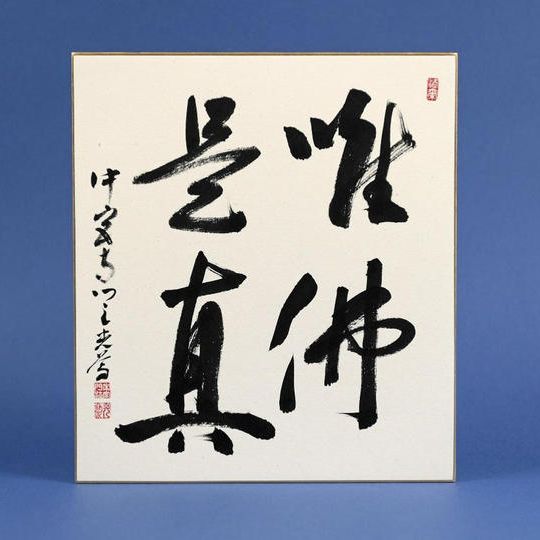 唯佛
是真
中宮寺門主光尊